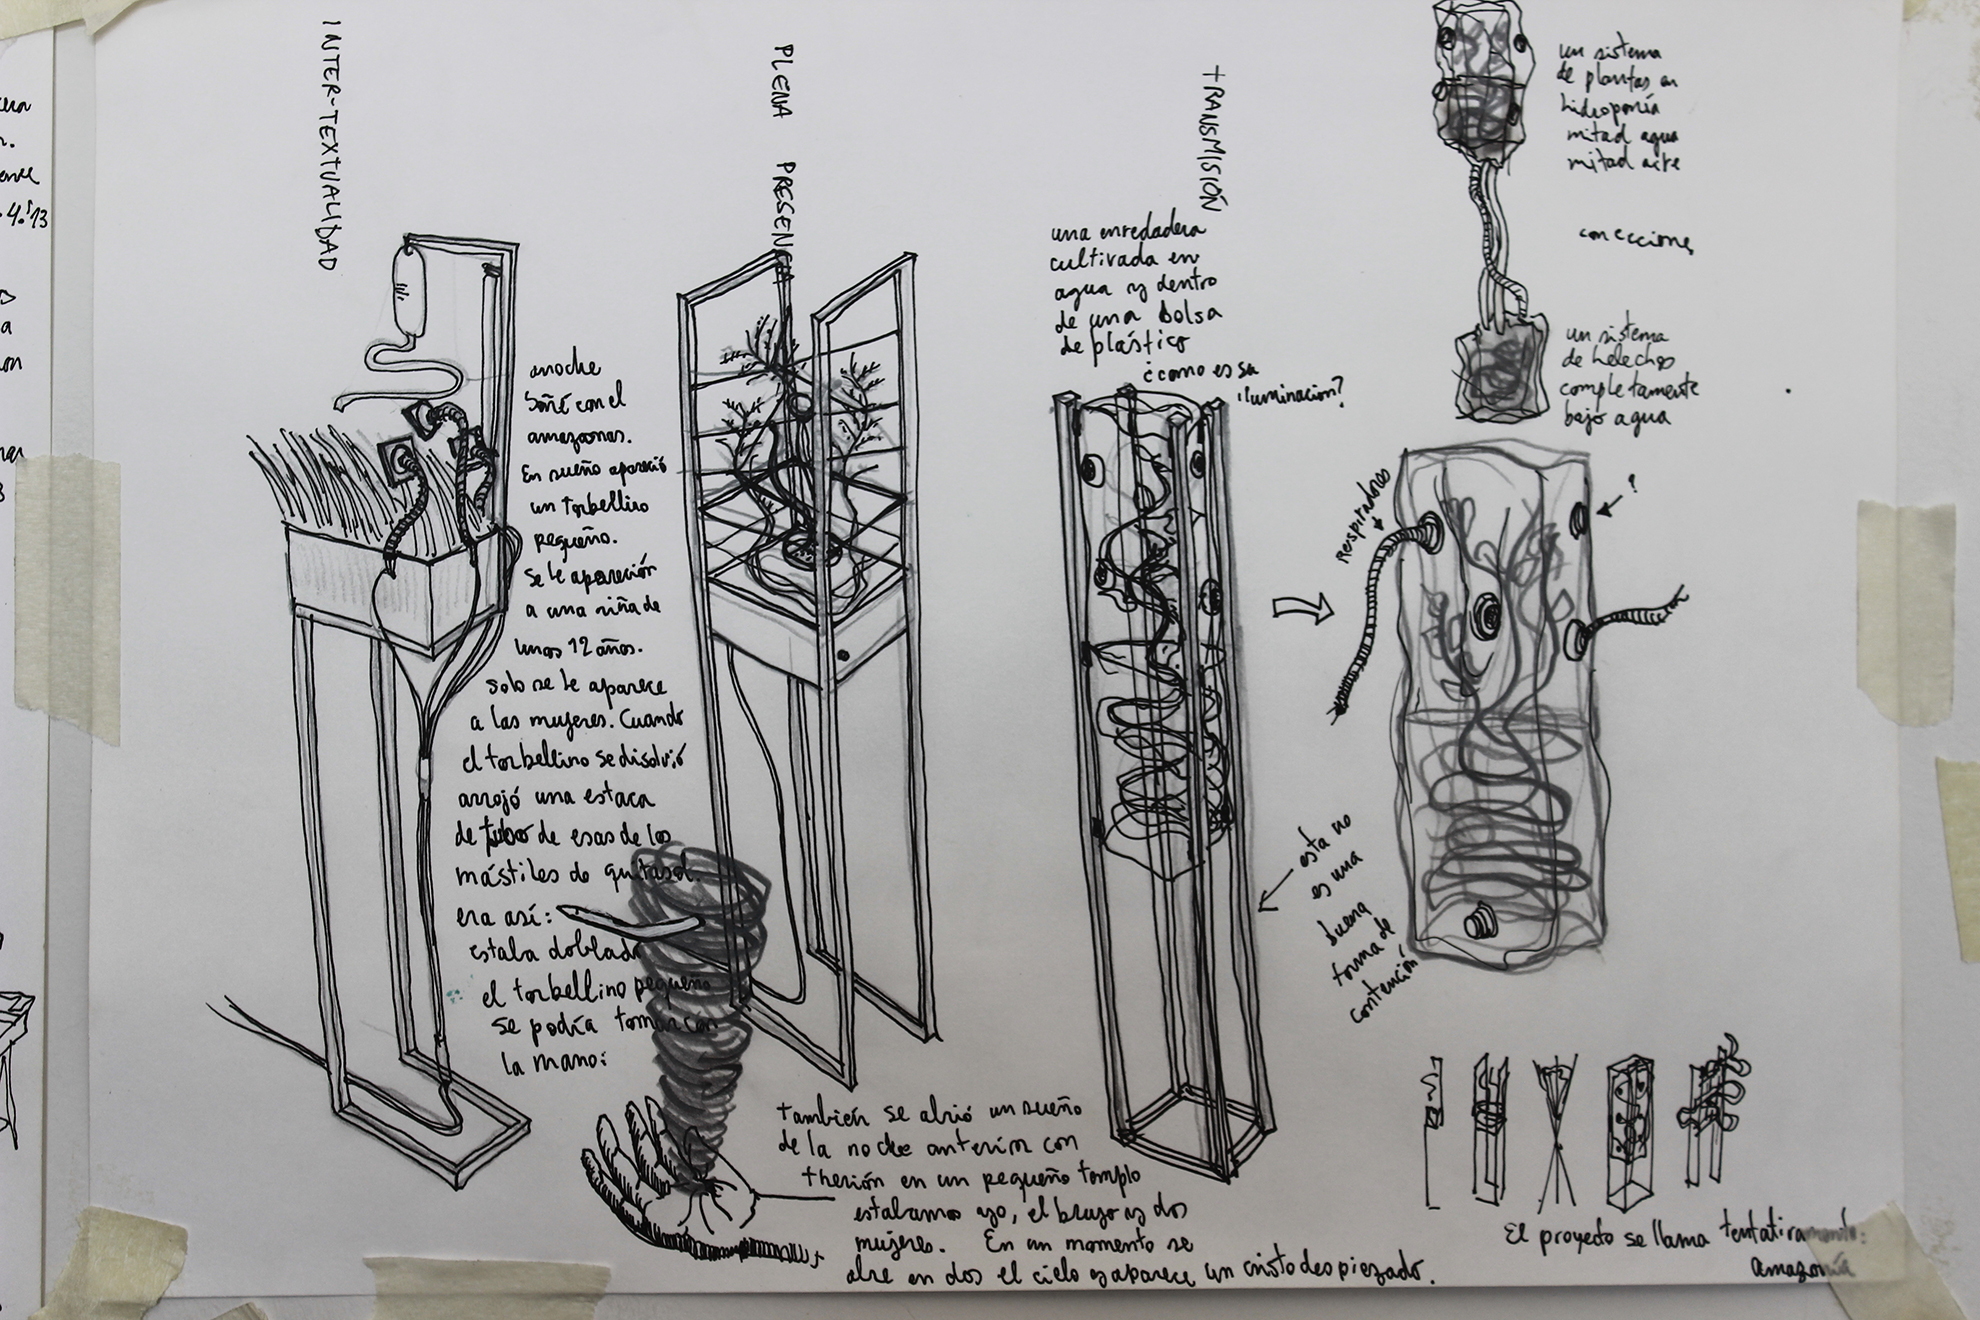 INTER-TEXTUALIDAD
anoche
soñé con el
amazonas.
En sueño apareció
un torbellino
pequeño.
se le aparición
a una niña de
unos 12 años.
solo se le aparece
a las mujeres. Cuando
el torbellino se disolvió
arrojó una estaca
de tubo de esas de los
mástiles de quitasol.
era así:
estaba doblado
el torbellino pequeño
se podía tomar con
la mano:
PLENA PRESENCIA
también se abrió un sueño
de la noche anterior con
therión en un pequeño templo
estabamos yo, el brujo y dos
mujeres. En un momento se
abre en dos el cielo y aparece un cristo despiezado.
TRANSMISIÓN
una enredadera
cultivada en
agua y dentro
de una bolsa
de plástico
¿como es su
iluminacion?
esta no
es una
buena
forma de
contención
un sistema
de plantas en
hidroponía
mitad agua
mitad aire
conecciones
un sistema
de helechos
completamente
bajo agua
Respiradores
?
El proyecto se llama tentativamente:
amazonía
4:13